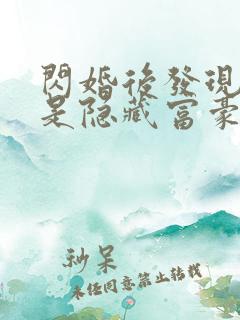 閃婚後發現
是隐藏富豪
秒呆
未经同意禁止转载